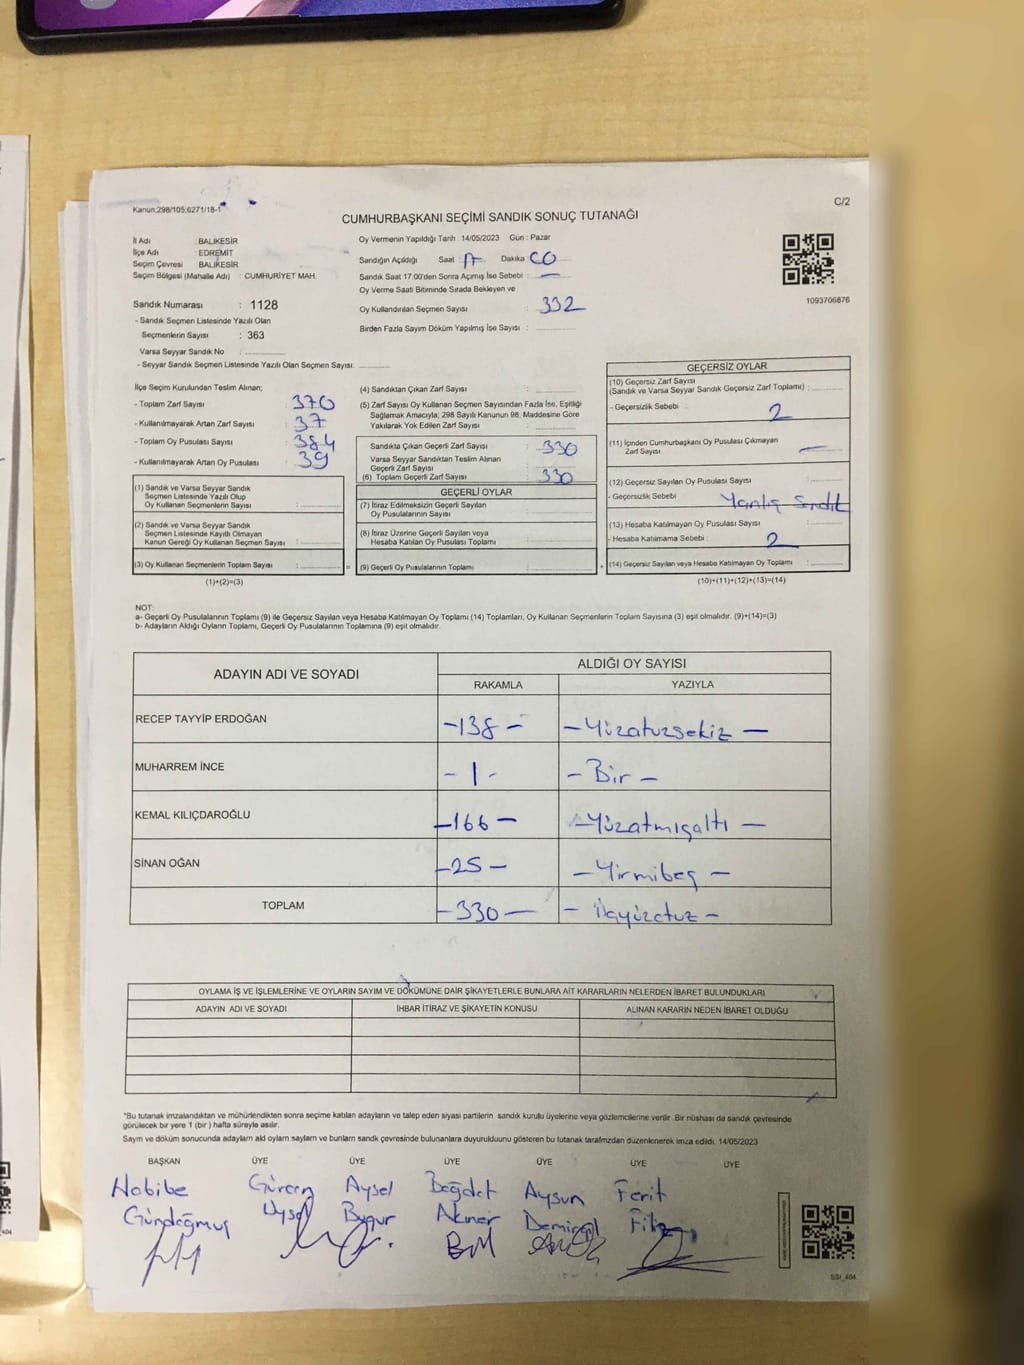 Kanun;298/105;6271/18-1
C/2
CUMHURBAŞKANI SEÇİMİ SANDIK SONUÇ TUTANAĞI
İl Adı : BALIKESİR
İlçe Adı : EDREMİT
Seçim Çevresi : BALIKESİR
Seçim Bölgesi (Mahalle Adı) : CUMHURİYET MAH.
Sandık Numarası : 1128
- Sandık Seçmen Listesinde Yazılı Olan
Seçmenlerin Sayısı : 363
Varsa Seyyar Sandık No :
- Seyyar Sandık Seçmen Listesinde Yazılı Olan Seçmen Sayısı:
Oy Vermenin Yapıldığı Tarih : 14/05/2023 Gün : Pazar
Sandığın Açıldığı Saat : 17 Dakika : 00
Sandık Saat 17.00'den Sonra Açımış İse Sebebi : —
Oy Verme Saati Bitiminde Sırada Bekleyen ve
Oy Kullandırılan Seçmen Sayısı : 332
Birden Fazla Sayım Döküm Yapılmış İse Sayısı :
1093706876
İlçe Seçim Kurulundan Teslim Alınan;
- Toplam Zarf Sayısı : 370
- Kullanılmayarak Artan Zarf Sayısı : 37
- Toplam Oy Pusulası Sayısı : 384
- Kullanılmayarak Artan Oy Pusulası : 39
(1) Sandık ve Varsa Seyyar Sandık
Seçmen Listesinde Yazılı Olup
Oy Kullanan Seçmenlerin Sayısı :
(2) Sandık ve Varsa Seyyar Sandık
Seçmen Listesinde Kayıtlı Olmayan
Kanun Gereği Oy Kullanan Seçmen Sayısı :
(3) Oy Kullanan Seçmenlerin Toplam Sayısı :
(1)+(2)=(3)
(4) Sandıktan Çıkan Zarf Sayısı :
(5) Zarf Sayısı Oy Kullanan Seçmen Sayısından Fazla İse, Eşitliği
Sağlamak Amacıyla; 298 Sayılı Kanunun 98. Maddesine Göre
Yakılarak Yok Edilen Zarf Sayısı :
Sandıkta Çıkan Geçerli Zarf Sayısı : 330
Varsa Seyyar Sandıktan Teslim Alınan
Geçerli Zarf Sayısı :
(6) Toplam Geçerli Zarf Sayısı : 330
GEÇERLİ OYLAR
(7) İtiraz Edilmeksizin Geçerli Sayılan
Oy Pusulalarının Sayısı :
(8) İtiraz Üzerine Geçerli Sayılan veya
Hesaba Katılan Oy Pusulası Toplamı :
(9) Geçerli Oy Pusulalarının Toplamı :
GEÇERSİZ OYLAR
(10) Geçersiz Zarf Sayısı
(Sandık ve Varsa Seyyar Sandık Geçersiz Zarf Toplamı) :
- Geçersizlik Sebebi : 2
(11) İçinden Cumhurbaşkanı Oy Pusulası Çıkmayan
Zarf Sayısı : —
(12) Geçersiz Sayılan Oy Pusulası Sayısı :
- Geçersizlik Sebebi : Yanlış Sandık
(13) Hesaba Katılmayan Oy Pusulası Sayısı :
- Hesaba Katılmama Sebebi : 2
(14) Geçersiz Sayılan veya Hesaba Katılmayan Oy Toplamı :
(10)+(11)+(12)+(13)=(14)
NOT:
a- Geçerli Oy Pusulalarının Toplamı (9) ile Geçersiz Sayılan veya Hesaba Katılmayan Oy Toplamı (14) Toplamları, Oy Kullanan Seçmenlerin Toplam Sayısına (3) eşit olmalıdır. (9)+(14)=(3)
b- Adayların Aldığı Oyların Toplamı, Geçerli Oy Pusulalarının Toplamına (9) eşit olmalıdır.
ADAYIN ADI VE SOYADI ALDIĞI OY SAYISI
RAKAMLA YAZIYLA
RECEP TAYYİP ERDOĞAN -138- -Yüzotuzsekiz-
MUHARREM İNCE -1- -Bir-
KEMAL KILIÇDAROĞLU -166- -Yüzatmışaltı-
SİNAN OĞAN -25- -Yirmibeş-
TOPLAM -330- -Üçyüzotuz-
OYLAMA İŞ VE İŞLEMLERİNE VE OYLARIN SAYIM VE DÖKÜMÜNE DAİR ŞİKAYETLERLE BUNLARA AİT KARARLARIN NELERDEN İBARET BULUNDUKLARI
ADAYIN ADI VE SOYADI İHBAR İTİRAZ VE ŞİKAYETİN KONUSU ALINAN KARARIN NEDEN İBARET OLDUĞU
*Bu tutanak imzalandıktan ve mühürlendikten sonra seçime katılan adayların ve talep eden siyasi partilerin sandık kurulu üyelerine veya gözlemcilerine verilir. Bir nüshası da sandık çevresinde
görülecek bir yere 1 (bir) hafta süreyle asılır.
Sayım ve döküm sonucunda adayların ald oyların sayıları ve bunların sandık çevresinde bulunanlara duyurulduğunu gösteren bu tutanak tarafımızdan düzenlenerek imza edildi. 14/05/2023
BAŞKAN ÜYE ÜYE ÜYE ÜYE ÜYE ÜYE
Habibe Gürcan Aysel Bağdat Aysun Ferit
Gündoğmuş Uysal Akıner Demirel
SSI_404